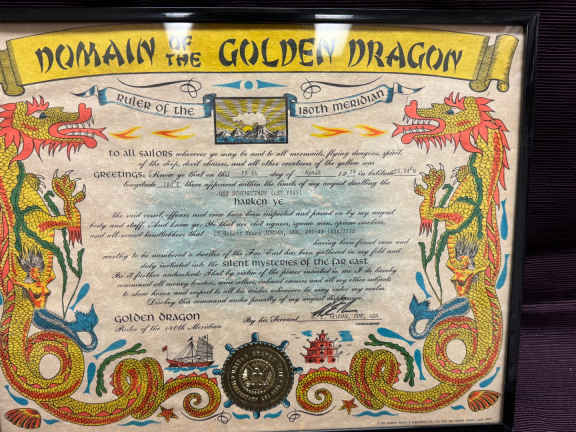 DOMAIN OF THE GOLDEN DRAGON
RULER OF THE 180TH MERIDIAN
to all sailors wherever ye may be and to all mermaids, flying dragons, spirits
of the deep, devil chasers, and all other creatures of the yellow sea
GREETINGS: Know ye that on this day of April 19 in latitude
longitude 180 there appeared within the limits of my august dwelling the
HARKEN YE
the said vessel, officers and crew have been inspected and passed on by my august
body and staff. And know ye: Ye that are chit signers, squaw men, opium smokers,
and all-around landlubbers that
having been found sane and
worthy to be numbered a dweller of the Far East has been gathered in my fold and
duly initiated into the SILENT MYSTERIES OF THE FAR EAST
Be it further understood: That by virtue of the power invested in me I do hereby
command all money lenders, wine sellers, cabaret owners and all my other subjects
to show honor and respect to all his wishes whenever he may enter my realm
Disobey this command under penalty of my august displeasure
GOLDEN DRAGON
Ruler of the 180th Meridian
By his Servant